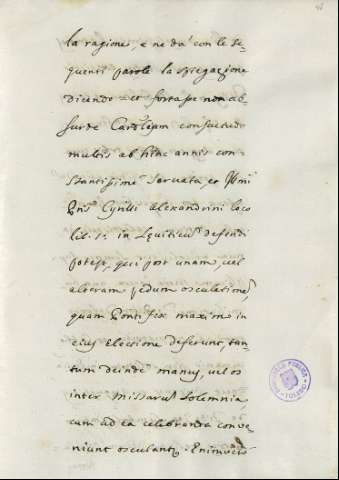 la ragione, e ne da' con le se,
quenti parole la spiegazione
dicendo = et fortasse non ab,
surde Card.lium consuetudo
multis ab hinc annis con
stantissime servata, ex
Cyrilli alexandrini loco
lib. 1. in Leviticum defendi
potest, qui post unam, vel
alteram pedum osculatione,
quam Pontifex maximo in
eius electione deferunt, tan,
tum deinde manus, vel os
inter missarum solemnia,
cum ad ea celebranda conve
niunt osculant. Enimvero